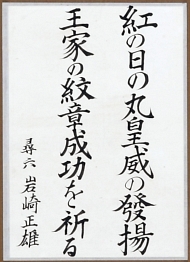 紅の日の丸皇威の發揚
王家の紋章成功を祈る
尋六 岩崎正雄